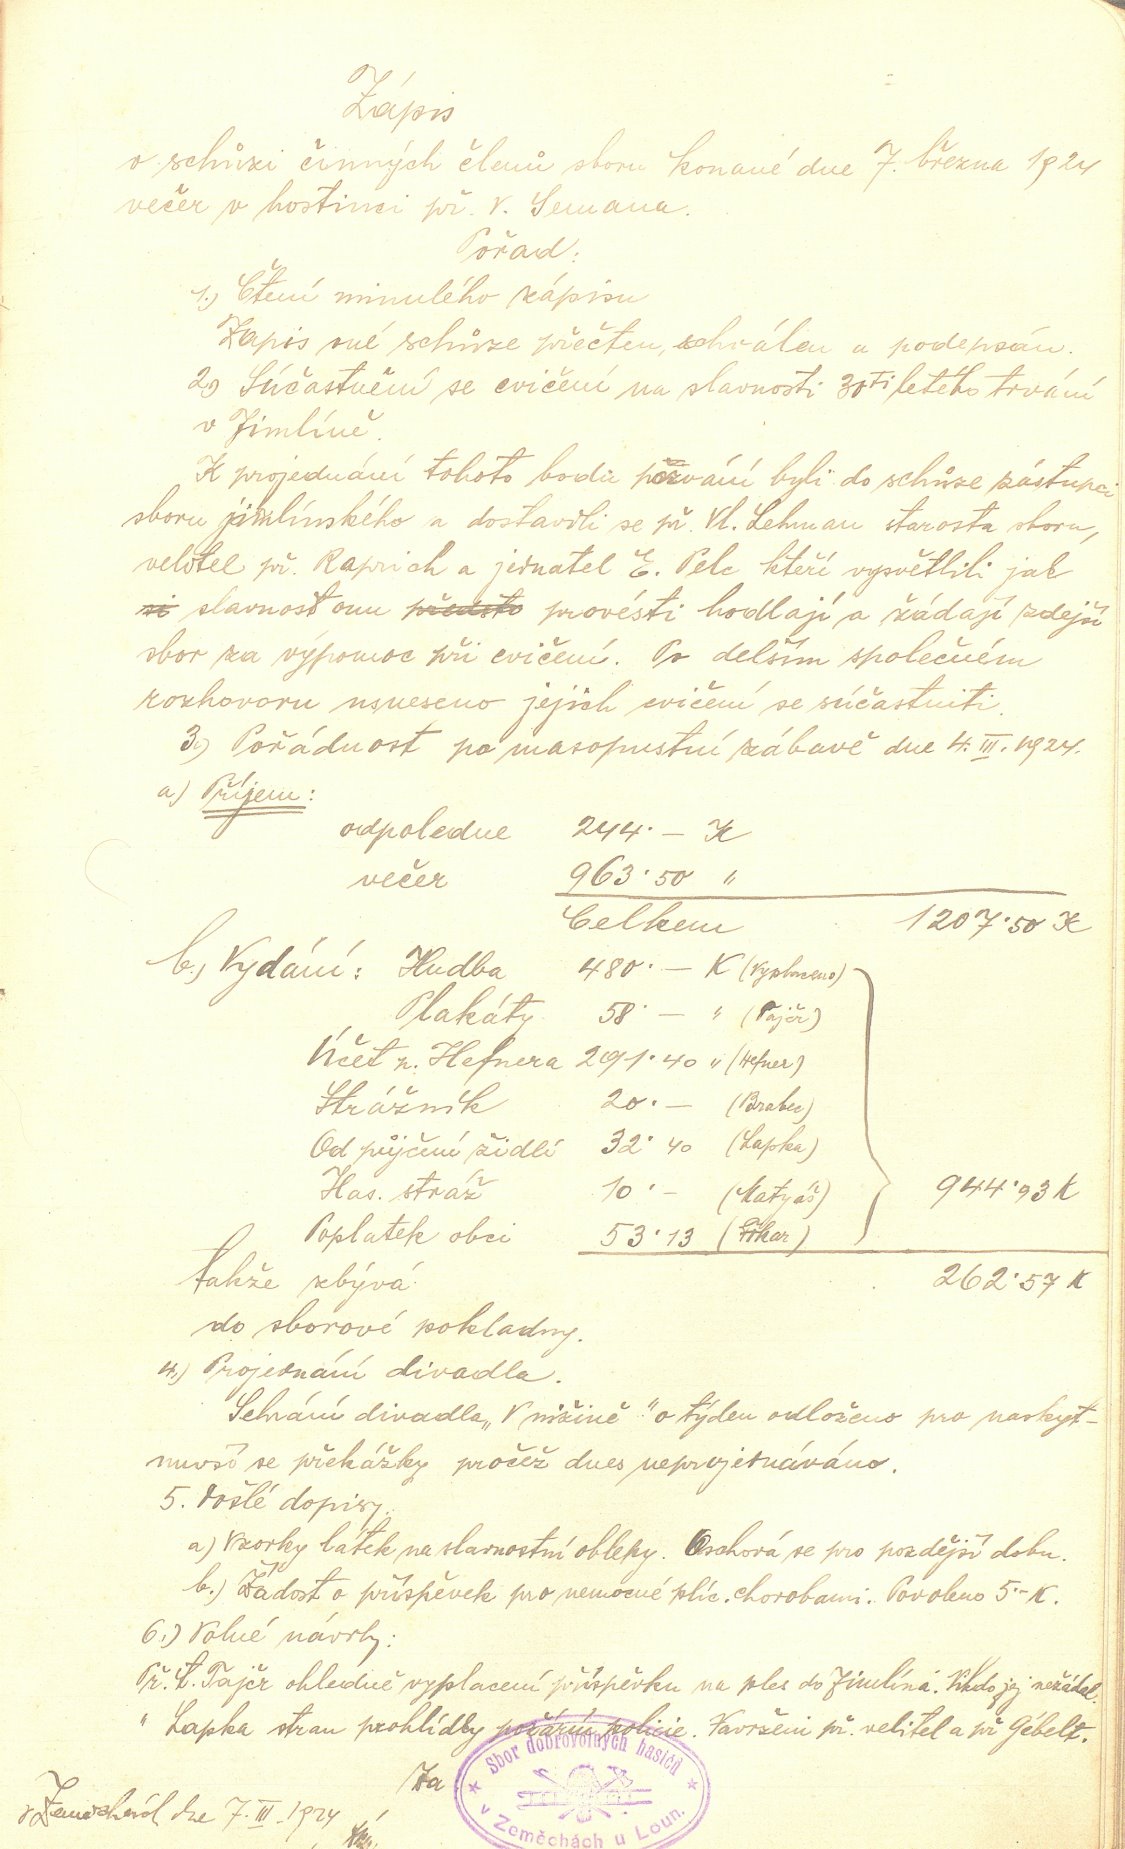 Zápis
o schůzi činných členů sboru konané dne 7. března 1924
večer v hostinci př. V. Semana.
Pořad:
1.) Čtení minulého zápisu
Zápis oné schůze přečten, schválen a podepsán.
2.) Súčastnění se cvičení na slavnosti 30ti letého trvání
v Jimlíně.
K projednání tohoto bodu pozváni byli do schůze zástupci
sboru jimlínského a dostavili se př. Vl. Lehman starosta sboru,
velitel př. Raprich a jednatel E. Pelc kteří vysvětlili jak
si slavnost onu předsta provésti hodlají a žádají zdejší
sbor za výpomoc při cvičení. Po delším společném
rozhovoru usneseno jejich cvičení se súčastniti.
3.) Pořádnost po masopustní zábavě dne 4. III. 1924.
a) Příjem:
odpoledne 244·— K
večer 963·50 "
Celkem 1207·50 K
b.) Vydání: Hudba 480·— K (Vyplaceno)
Plakáty 58·— " (Pajér)
Účet p. Hefnera 291·40 " (Hefner)
Strážník 20·— (Brabec)
Od půjčení židlí 32·40 (Lapka)
Has. stráž 10·— (Matyáš) 944·93 K
Poplatek obci 53·13
takže zbývá 262·57 K
do sborové pokladny.
4.) Projednání divadla.
Sehrání divadla „V nížině" o týden odloženo pro naskyt-
nuvší se překážky pročež dnes neprojednáváno.
5. Došlé dopisy.
a) Vzorky látek na slavnostní obleky. Oschová se pro pozdější dobu.
b.) Žádost o příspěvek pro nemocné plic. chorobami. Povoleno 5·— K.
6.) Volné návrhy:
Př. t. Pajér ohledně vyplacení příspěvku na ples do Jimlína. Nikdo jej nežádal.
" Lapka stran prohlídky požární policie. Navrženi př. velitel a př Gébelt.
Za
Sbor dobrovolných hasičů
v Zeměchách u Loun.
v Zeměchách dne 7. III. 1924